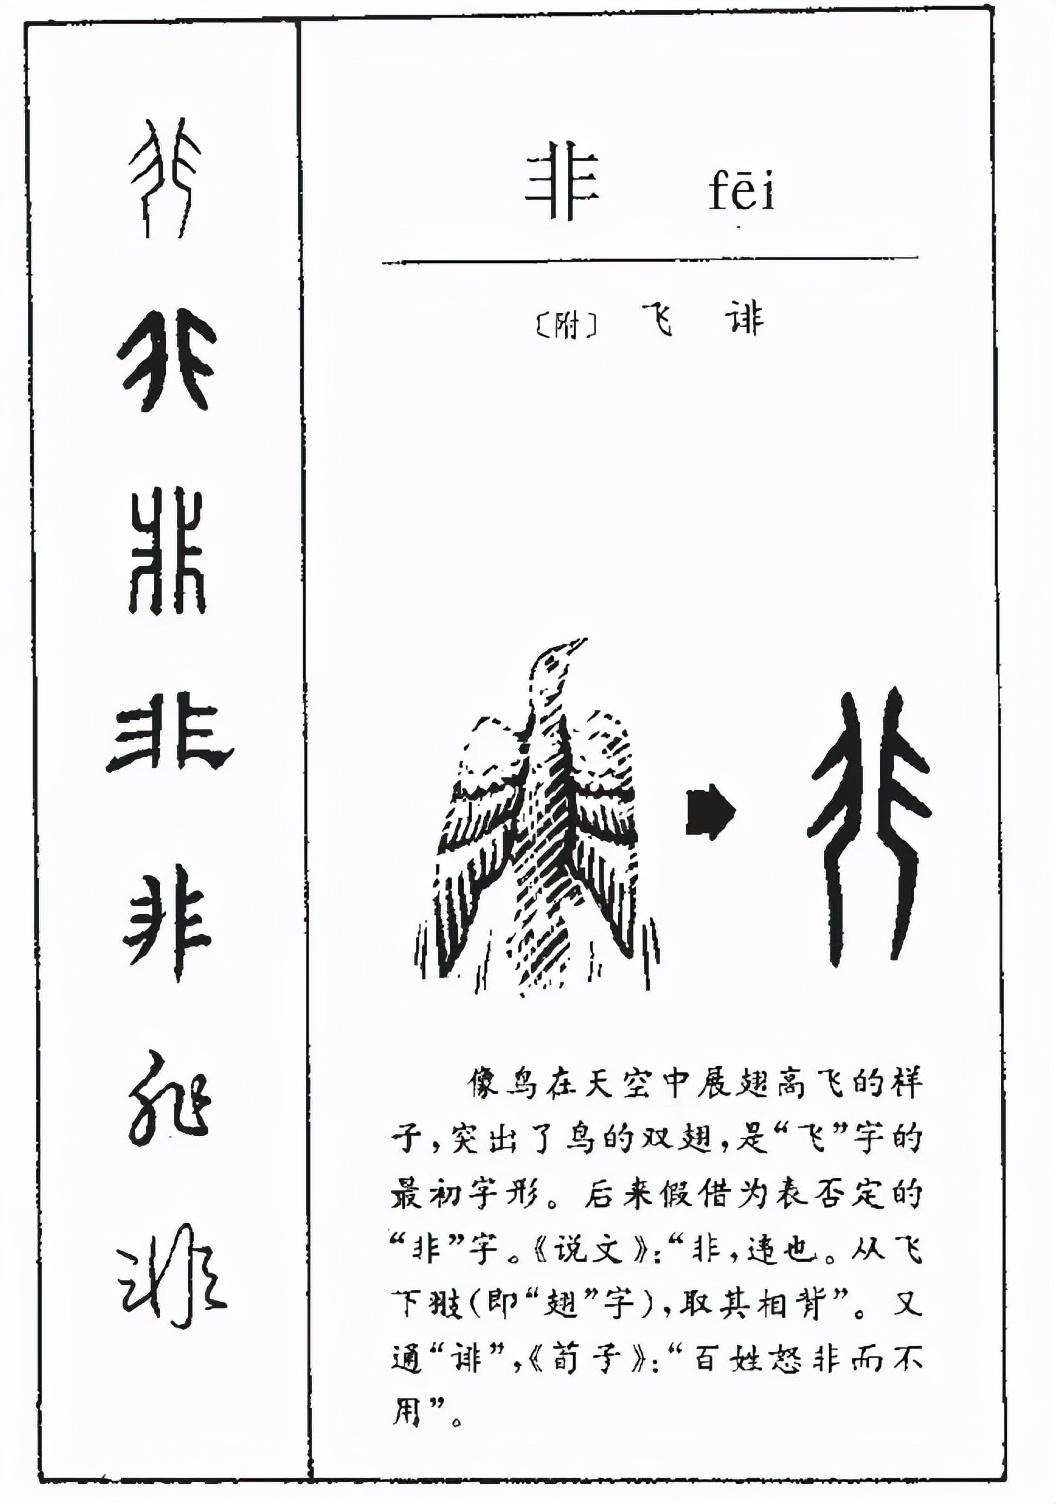 非 fēi
〔附〕 飞 诽
像鸟在天空中展翅高飞的样
子,突出了鸟的双翅,是“飞”字的
最初字形。后来假借为表否定的
“非”字。《说文》:“非,违也。从飞
下翄(即“翅”字),取其相背”。又
通“诽”,《荀子》:“百姓怒非而不
用”。